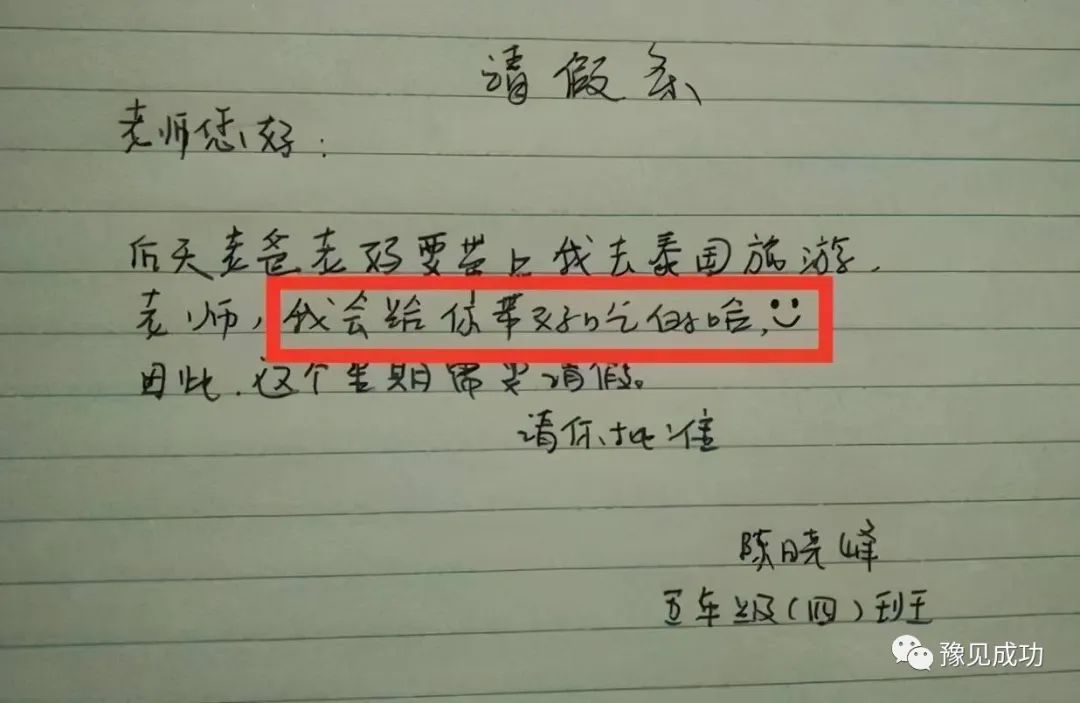 请假条
老师您好：
后天老爸老妈要带上我去泰国旅游，
老师，我会给你带好吃的哈，
因此，这个星期需要请假。
请你批准
陈晓峰
五年级（四）班
豫见成功